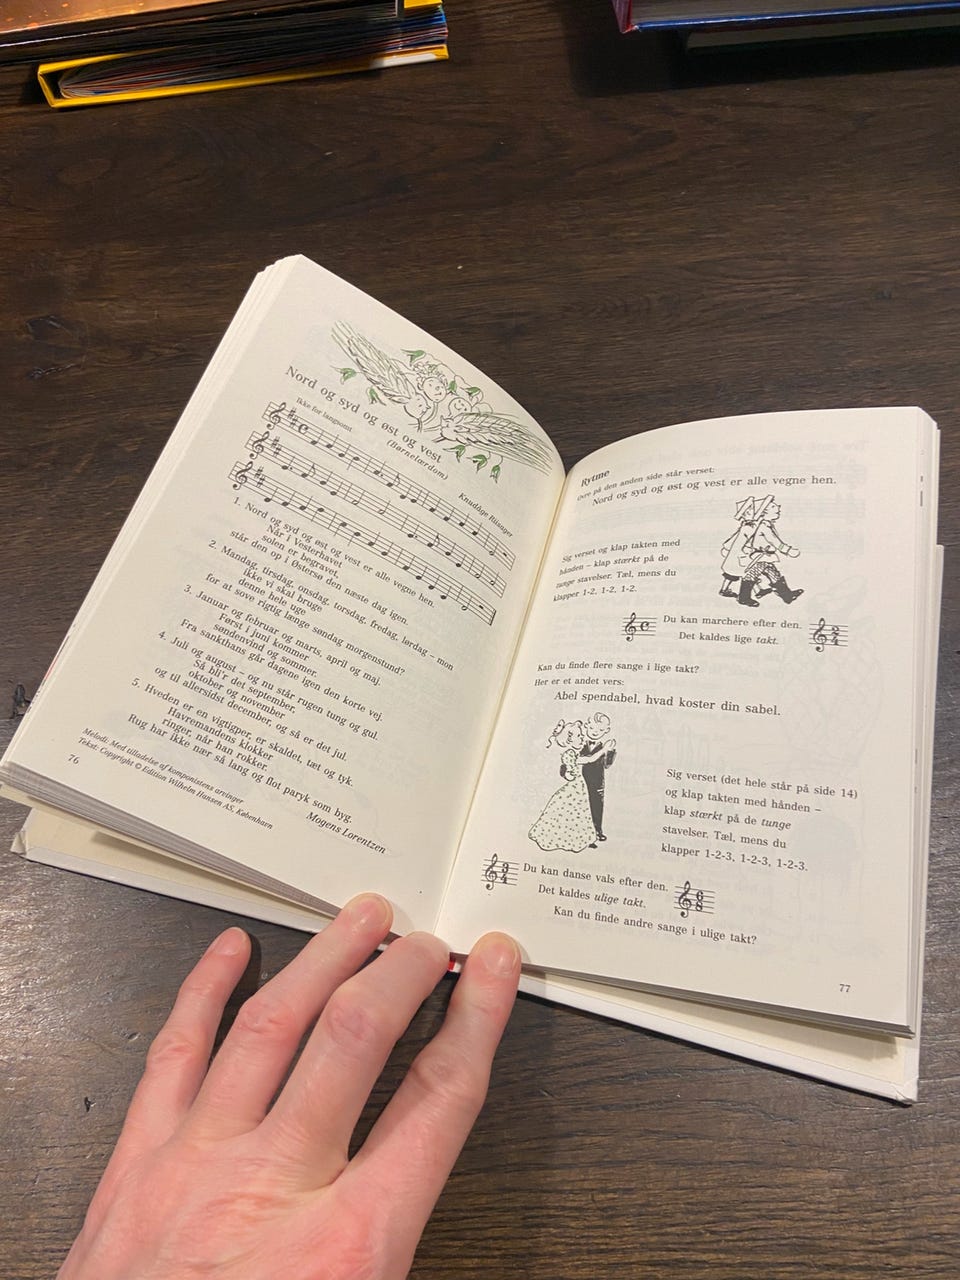 Nord og syd og øst og vest
(Børnelærdom)
Ikke for langsomt
Knudåge Riisager
1. Nord og syd og øst og vest er alle vegne hen.
Når i Vesterhavet
solen er begravet,
står den op i Østersø den næste dag igen.
2. Mandag, tirsdag, onsdag, torsdag, fredag, lørdag – mon
ikke vi skal bruge
denne hele uge
for at sove rigtig længe søndag morgenstund?
3. Januar og februar og marts, april og maj.
Først i juni kommer
søndenvind og sommer.
Fra sankthans går dagene igen den korte vej.
4. Juli og august – og nu står rugen tung og gul.
Så bli'r det september,
oktober og november
og til allersidst december, og så er det jul.
5. Hveden er en vigtigper, er skaldet, tæt og tyk.
Havremandens klokker
ringer, når han rokker.
Rug har ikke nær så lang og flot paryk som byg.
Mogens Lorentzen
Melodi: Med tilladelse af komponistens arvinger
Tekst: Copyright © Edition Wilhelm Hansen AS, København
76
Rytme
Ovre på den anden side står verset:
Nord og syd og øst og vest er alle vegne hen.
Sig verset og klap takten med
hånden – klap stærkt på de
tunge stavelser. Tæl, mens du
klapper 1-2, 1-2, 1-2.
Du kan marchere efter den.
Det kaldes lige takt.
2
4
Kan du finde flere sange i lige takt?
Her er et andet vers:
Abel spendabel, hvad koster din sabel.
Sig verset (det hele står på side 14)
og klap takten med hånden –
klap stærkt på de tunge
stavelser. Tæl, mens du
klapper 1-2-3, 1-2-3, 1-2-3.
3
4
Du kan danse vals efter den.
Det kaldes ulige takt.
6
8
Kan du finde andre sange i ulige takt?
77